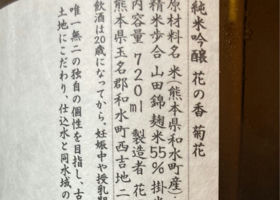 純米吟醸 花の香 菊花
原材料名 米(熊本県和水町産)
精米歩合 山田錦 麹米55% 掛
内容量 720ml 製造者 花
熊本県玉名郡和水町西吉地二
飲酒は20歳になってから。妊娠中や授乳期
唯一無二の独自の個性を目指し、古
土地にこだわり、仕込水と同水域の